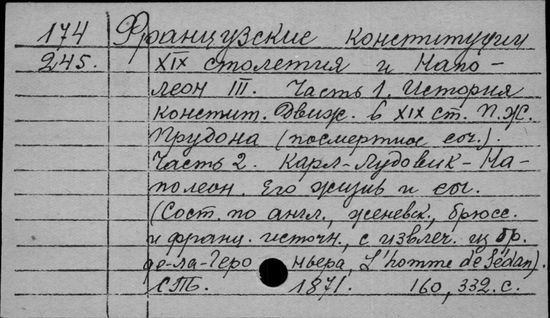 174 Французские конституции
245. XIX столетия и Напо-
леон III. Часть 1. История
Констит. Движ. в XIX ст. П.Ж.
Прудона (посмертное соч.).
Часть 2. Карл-Лудовик-На-
полеон. Его жизнь и соч.
(Сост. по англ., женевск., брюсс.
и франц. источн., с извлеч. из бр.
де-ла-Геро ньера, L'homme de Sédan).
СПБ. 1871. 160, 332. с.